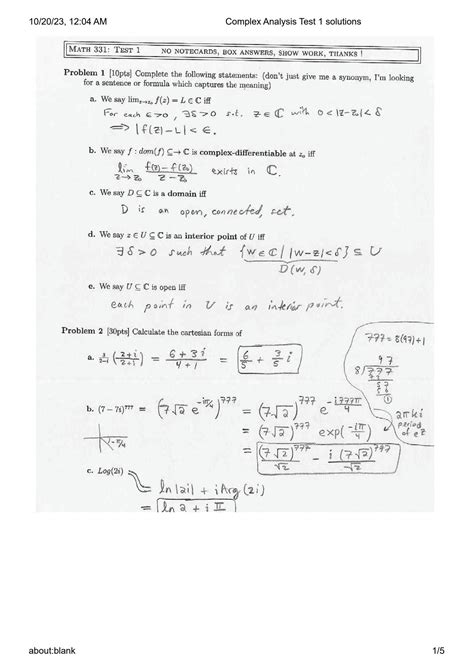 10/20/23, 12:04 AM Complex Analysis Test 1 solutions
MATH 331: TEST 1 NO NOTECARDS, BOX ANSWERS, SHOW WORK, THANKS !
Problem 1 [10pts] Complete the following statements: (don't just give me a synonym, I'm looking
for a sentence or formula which captures the meaning)
a. We say lim_{z→z₀} f(z) = L ∈ ℂ iff
For each ε>0, ∃δ>0 s.t. z ∈ ℂ with 0<|z-z₀|<δ
⟹ |f(z)-L| < ε.
b. We say f : dom(f) ⊆→ ℂ is complex-differentiable at z₀ iff
lim_{z→z₀} (f(z)-f(z₀))/(z-z₀) exists in ℂ.
c. We say D ⊆ ℂ is a domain iff
D is an open, connected, set.
d. We say z ∈ U ⊆ ℂ is an interior point of U iff
∃δ>0 such that {w∈ℂ | |w-z|<δ} ⊆ U
D(w,δ)
e. We say U ⊆ ℂ is open iff
each point in U is an interior point.
Problem 2 [30pts] Calculate the cartesian forms of
777 = 8(97)+1
a. 3/(2-i) (2+i/2+i) = (6+3i)/(4+1) = 6/5 + 3/5 i
97
8/777
72
57
56
①
b. (7-7i)^777 = (7√2 e^{-iπ/4})^777 = (7√2)^777 e^{-i777π/4}
= (7√2)^777 exp(-iπ/4)
2πki
period
of e^z
-π/4
= (7√2)^777/√2 - i(7√2)^777/√2
c. Log(2i)
= ln|2i| + iArg(2i)
= ln 2 + i π
about:blank 1/5